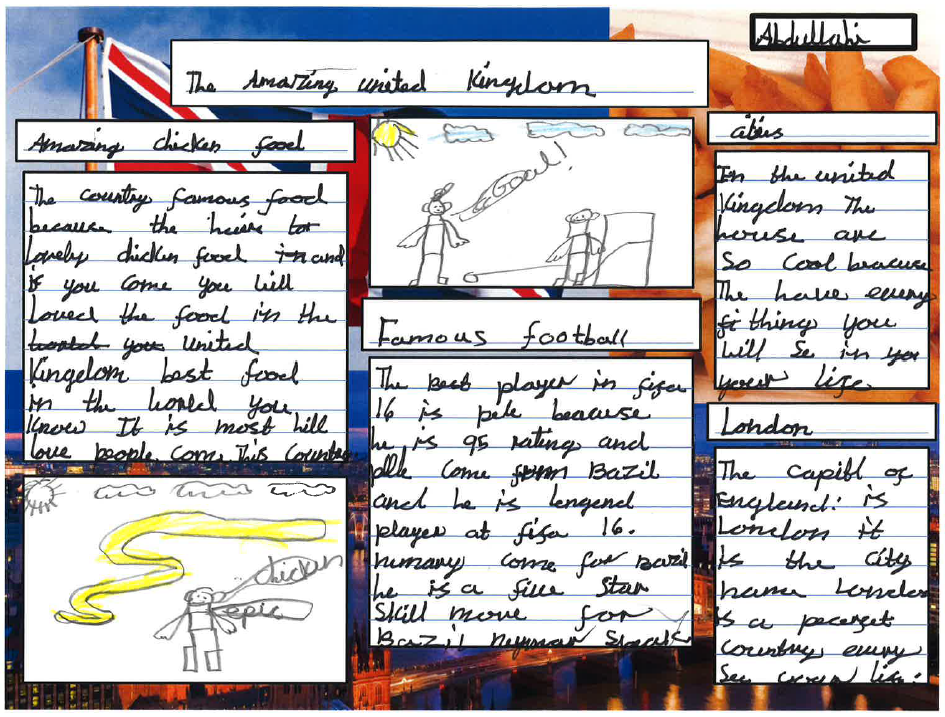 Abdullahi
The Amazing united Kingdom
Amazing chicken food
The country famous food
because the hairs to
Lovely chicken food in and
if you come you will
Loved the food in the
world you united
Kingdom best food
in the world you
Know It is most will
love people come This country
Goal!
Famous football
The Best player in fifa
16 is pele beacuse
he is 95 rating and
come Bazil
and he is lengend
player at fifa 16.
numary come for Bazil
he is a five Star
Skill move for
Bazil Neymar
chicken
epic
In the united
Kingdom The
house are
So cool beacuse
The have every
thing you
will Se in
your life
London
The capitl of
England: is
London it
is the city
name London
is a percfet
country every
See life.